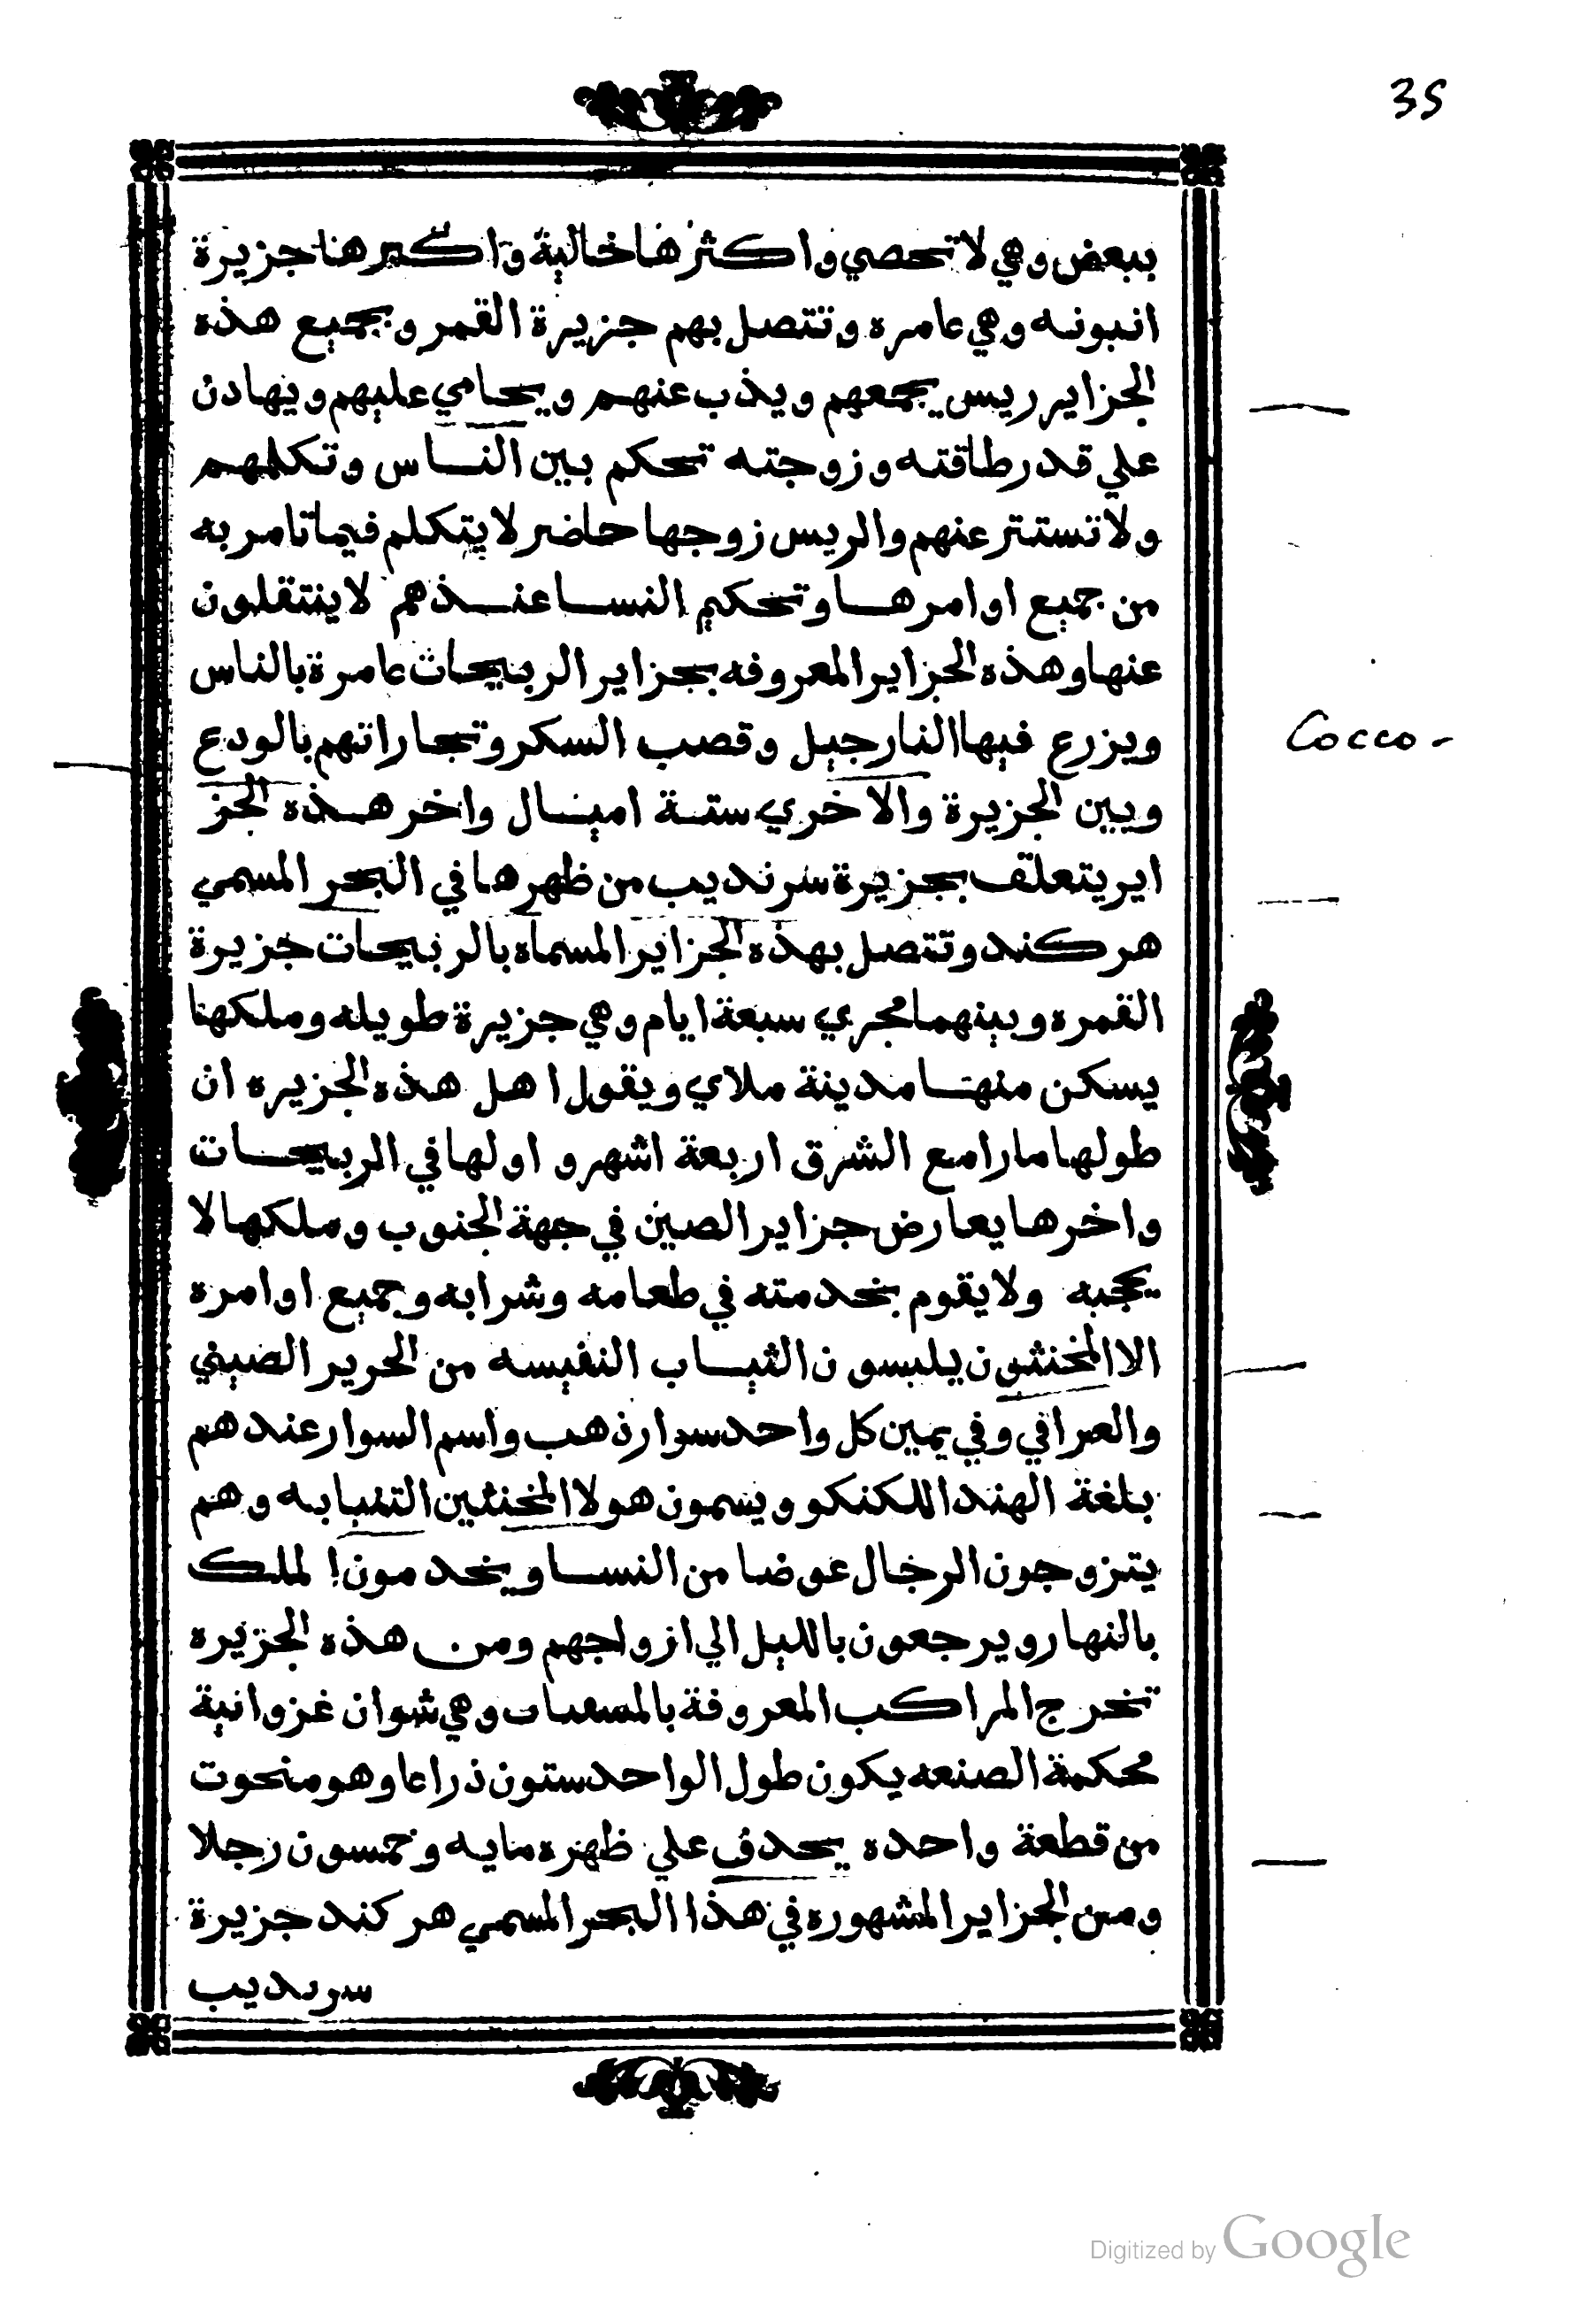 35
ببعض وهي لا تحصي واكثرها خالية واكبرها جزيرة
انبونه وهي عامره وتتصل بهم جزيرة القمر وبجميع هذه
الجزاير ريس يجمعهم ويذب عنهم ويحامي عليهم ويهادن
علي قدر طاقته وزوجته تحكم بين الناس وتكلمهم
ولا تستتر عنهم والريس زوجها حاضر لا يتكلم فيما تامر به
من جميع اوامرها وتحكيم النسا عندهم لا ينتقلون
عنها وهذه الجزاير المعروفه بجزاير الربيحات عامرة بالناس
ويزرع فيها النارجيل وقصب السكر وتجاراتهم بالودع
Cocco -
وبين الجزيرة والاخري ستة اميال واخر هذه الجز
اير يتعلق بجزيرة سرنديب من ظهرها في البحر المسمي
هركند وتتصل بهذه الجزاير المسماه بالربيحات جزيرة
القمره وبينهما مجري سبعة ايام وهي جزيرة طويله وملكها
يسكن منها مدينة ملاي ويقول اهل هذه الجزيره ان
طولها مارا مع الشرق اربعة اشهر و اولها في الربيحات
واخرها يعارض جزاير الصين في جهة الجنوب وملكها لا
يحجبه ولا يقوم بخدمته في طعامه وشرابه وجميع اوامره
الا المخنثون يلبسون الثياب النفيسه من الحرير الصيني
والعراقي وفي يمين كل واحد سوار ذهب واسم السوار عندهم
بلغة الهند اللكنكو ويسمون هولا المخنثين التنبابه وهم
يتزوجون الرجال عوضا من النسا ويخدمون الملك
بالنهار ويرجعون بالليل الي ازواجهم ومن هذه الجزيره
تخرج المراكب المعروفة بالمسعيات وهي شوان غزوانية
محكمة الصنعه يكون طول الواحد ستون ذراعا وهو منحوت
من قطعة واحده يحدف علي ظهره مايه وخمسون رجلا
ومن الجزاير المشهوره في هذا البحر المسمي هركند جزيرة
سرنديب
Digitized by Google